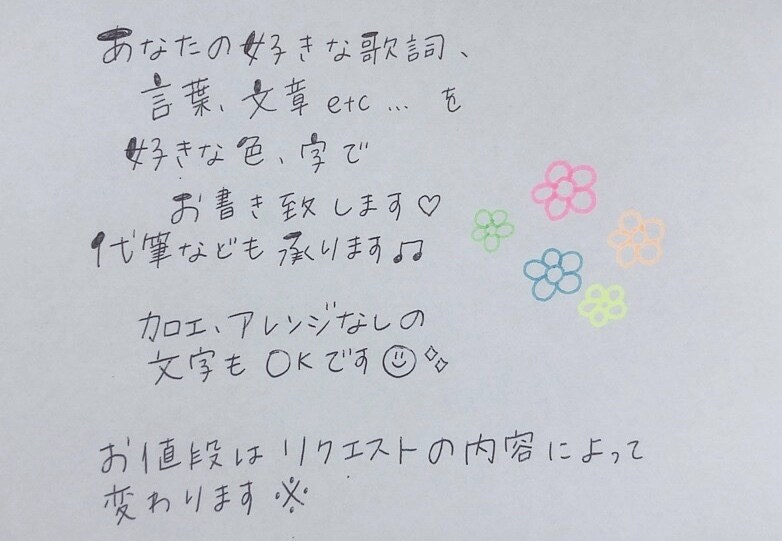 あなたの好きな歌詞、
言葉、文章etc...を
好きな色、字で
お書き致します♡
代筆なども承ります♫
加工、アレンジなしの
文字もOKです☺✨
お値段はリクエストの内容によって
変わります※